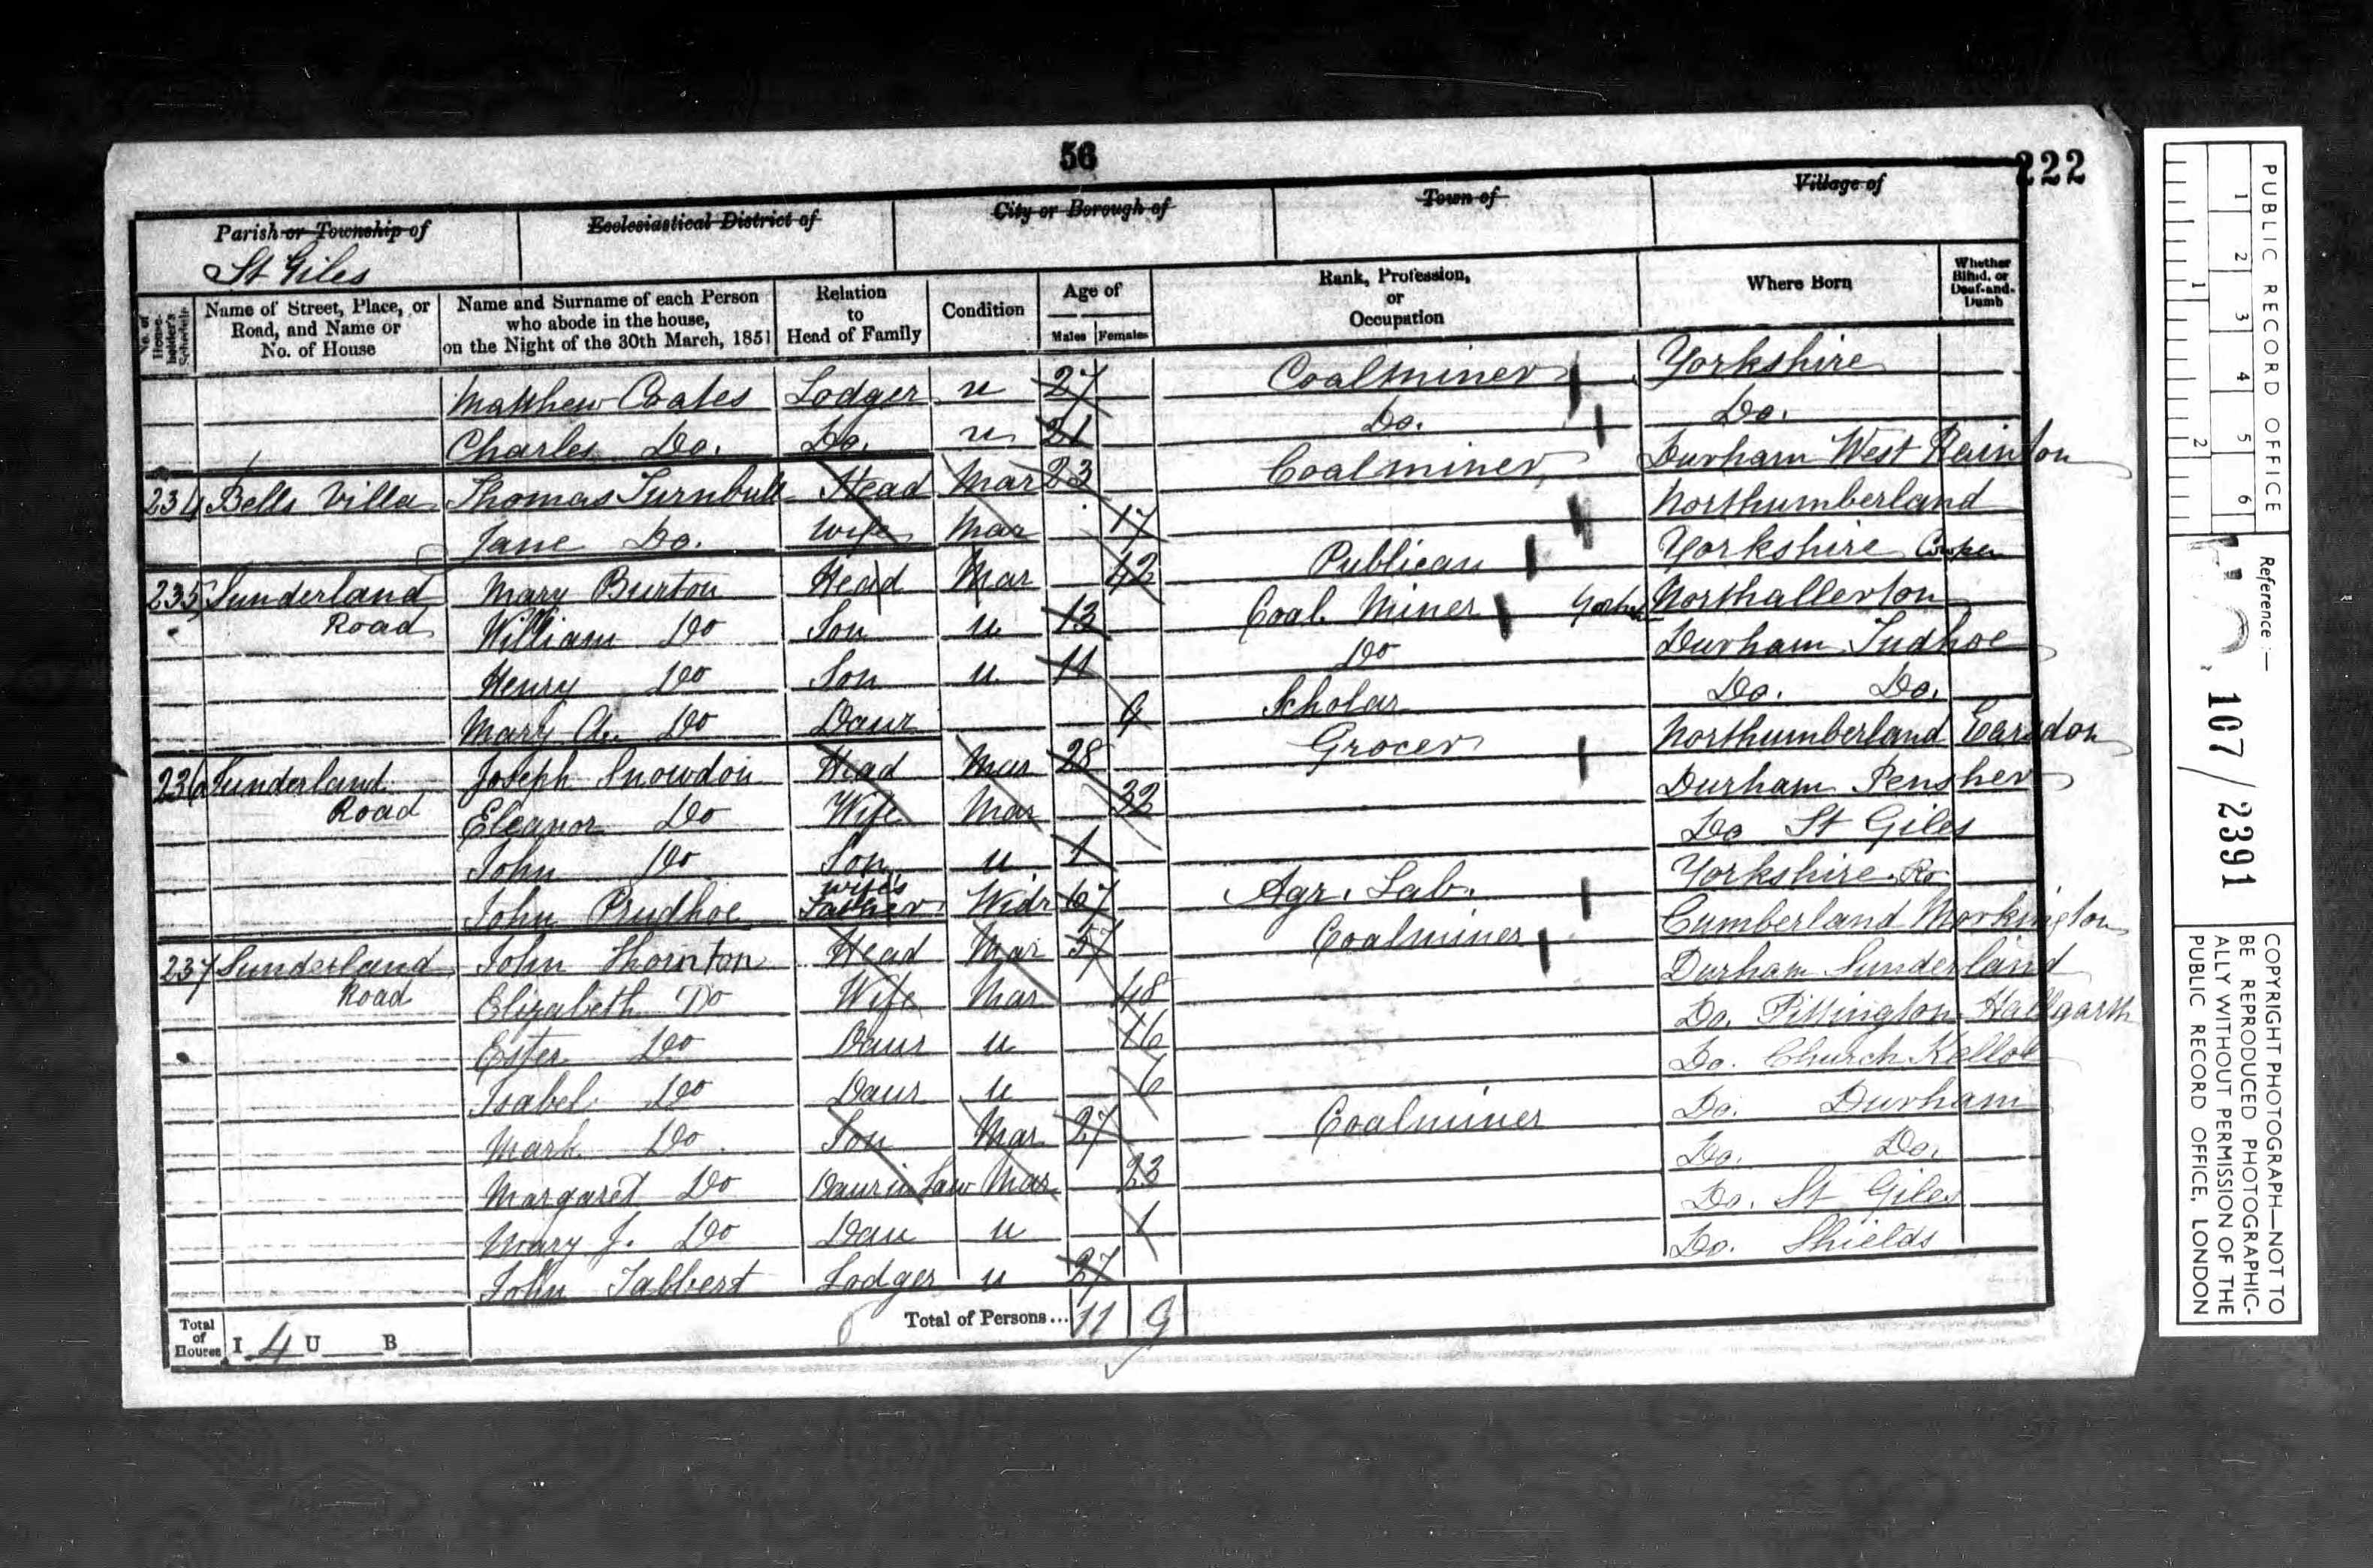 56
222
Parish or Township of
St Giles
Ecclesiastical District of
City or Borough of
Town of
Village of
No. of House-holder's Schedule
Name of Street, Place, or Road, and Name or No. of House
Name and Surname of each Person who abode in the house, on the Night of the 30th March, 1851
Relation to Head of Family
Condition
Age of
Males Females
Rank, Profession, or Occupation
Where Born
Whether Blind, or Deaf-and-Dumb
Matthew Coates Lodger u 27 Coalminer Yorkshire
Charles Do. Do. u 21 Do. Do.
234 Bells Villa Thomas Turnbull Head Mar 23 Coalminer Durham West Rainton
Jane Do. Wife Mar 17 Northumberland
235 Sunderland Road Mary Burton Head Mar 42 Publican Yorkshire
William Do Son u 13 Coal Miner Northallerton
Henry Do Son u 11 Do Durham Tudhoe
Mary A. Do Daur 9 Scholar Do. Do.
236 Sunderland Road Joseph Snowdon Head Mar 28 Grocer Northumberland Earsdon
Eleanor Do Wife Mar 32 Durham Pensher
John Do Son u 1 Do St Giles
John Prudhoe Wife's Father Widr 67 Agr. Lab. Yorkshire
237 Sunderland Road John Thornton Head Mar 57 Coalminer Cumberland Workington
Elizabeth Do Wife Mar 48 Durham Sunderland
Ester Do Daur u 16 Do. Pittington Hallgarth
Isabel Do Daur u 6 Do. Church Kelloe
Mark Do Son Mar 27 Coalminer Do. Durham
Margaret Do Daur in Law Mar 23 Do. Do.
Mary J. Do Dau u 1 Do. St Giles
John Tabbert Lodger u 27 Do. Shields
Total of Houses I 4 U B
Total of Persons... 11 9
PUBLIC RECORD OFFICE
1 2 3 4 5 6
1 2
Reference:-
107/2391
COPYRIGHT PHOTOGRAPH—NOT TO BE REPRODUCED PHOTOGRAPHIC-ALLY WITHOUT PERMISSION OF THE PUBLIC RECORD OFFICE, LONDON